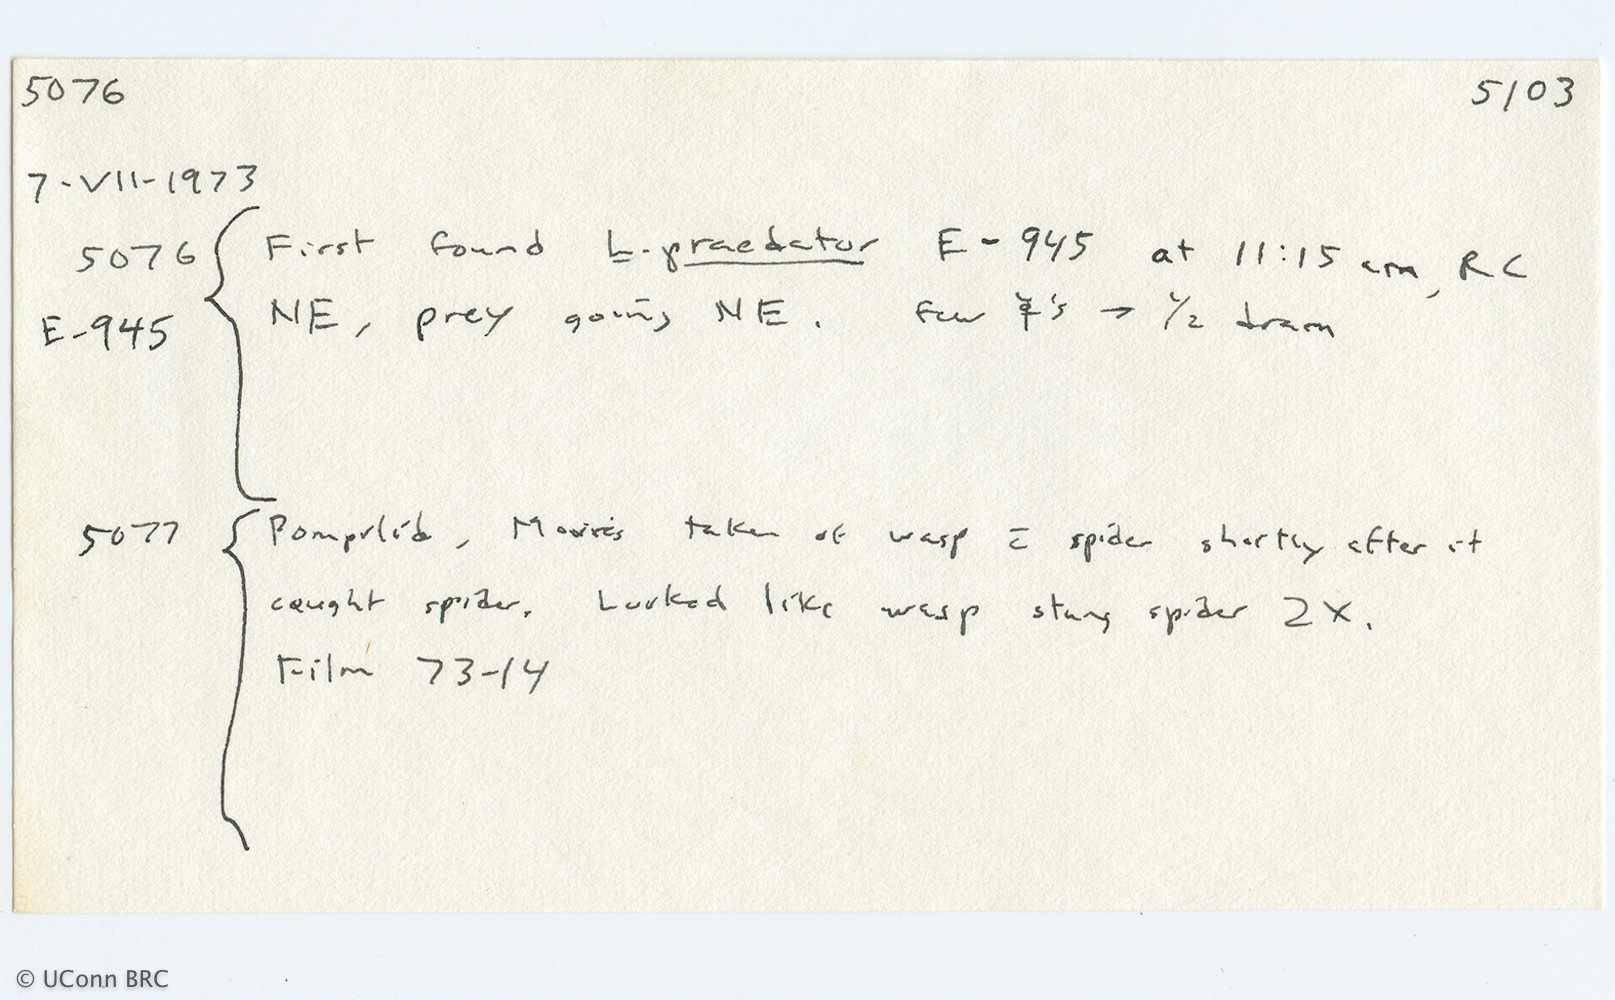 5076 5103
7-VII-1973
5076 First found E. praedator E-945 at 11:15 am, RC
E-945 NE, prey going NE. Few ☿'s → 1/2 dram
5077 Pompilid, Movies taken of wasp c̄ spider shortly after it
caught spider. Looked like wasp stung spider 2X.
Film 73-14
© UConn BRC